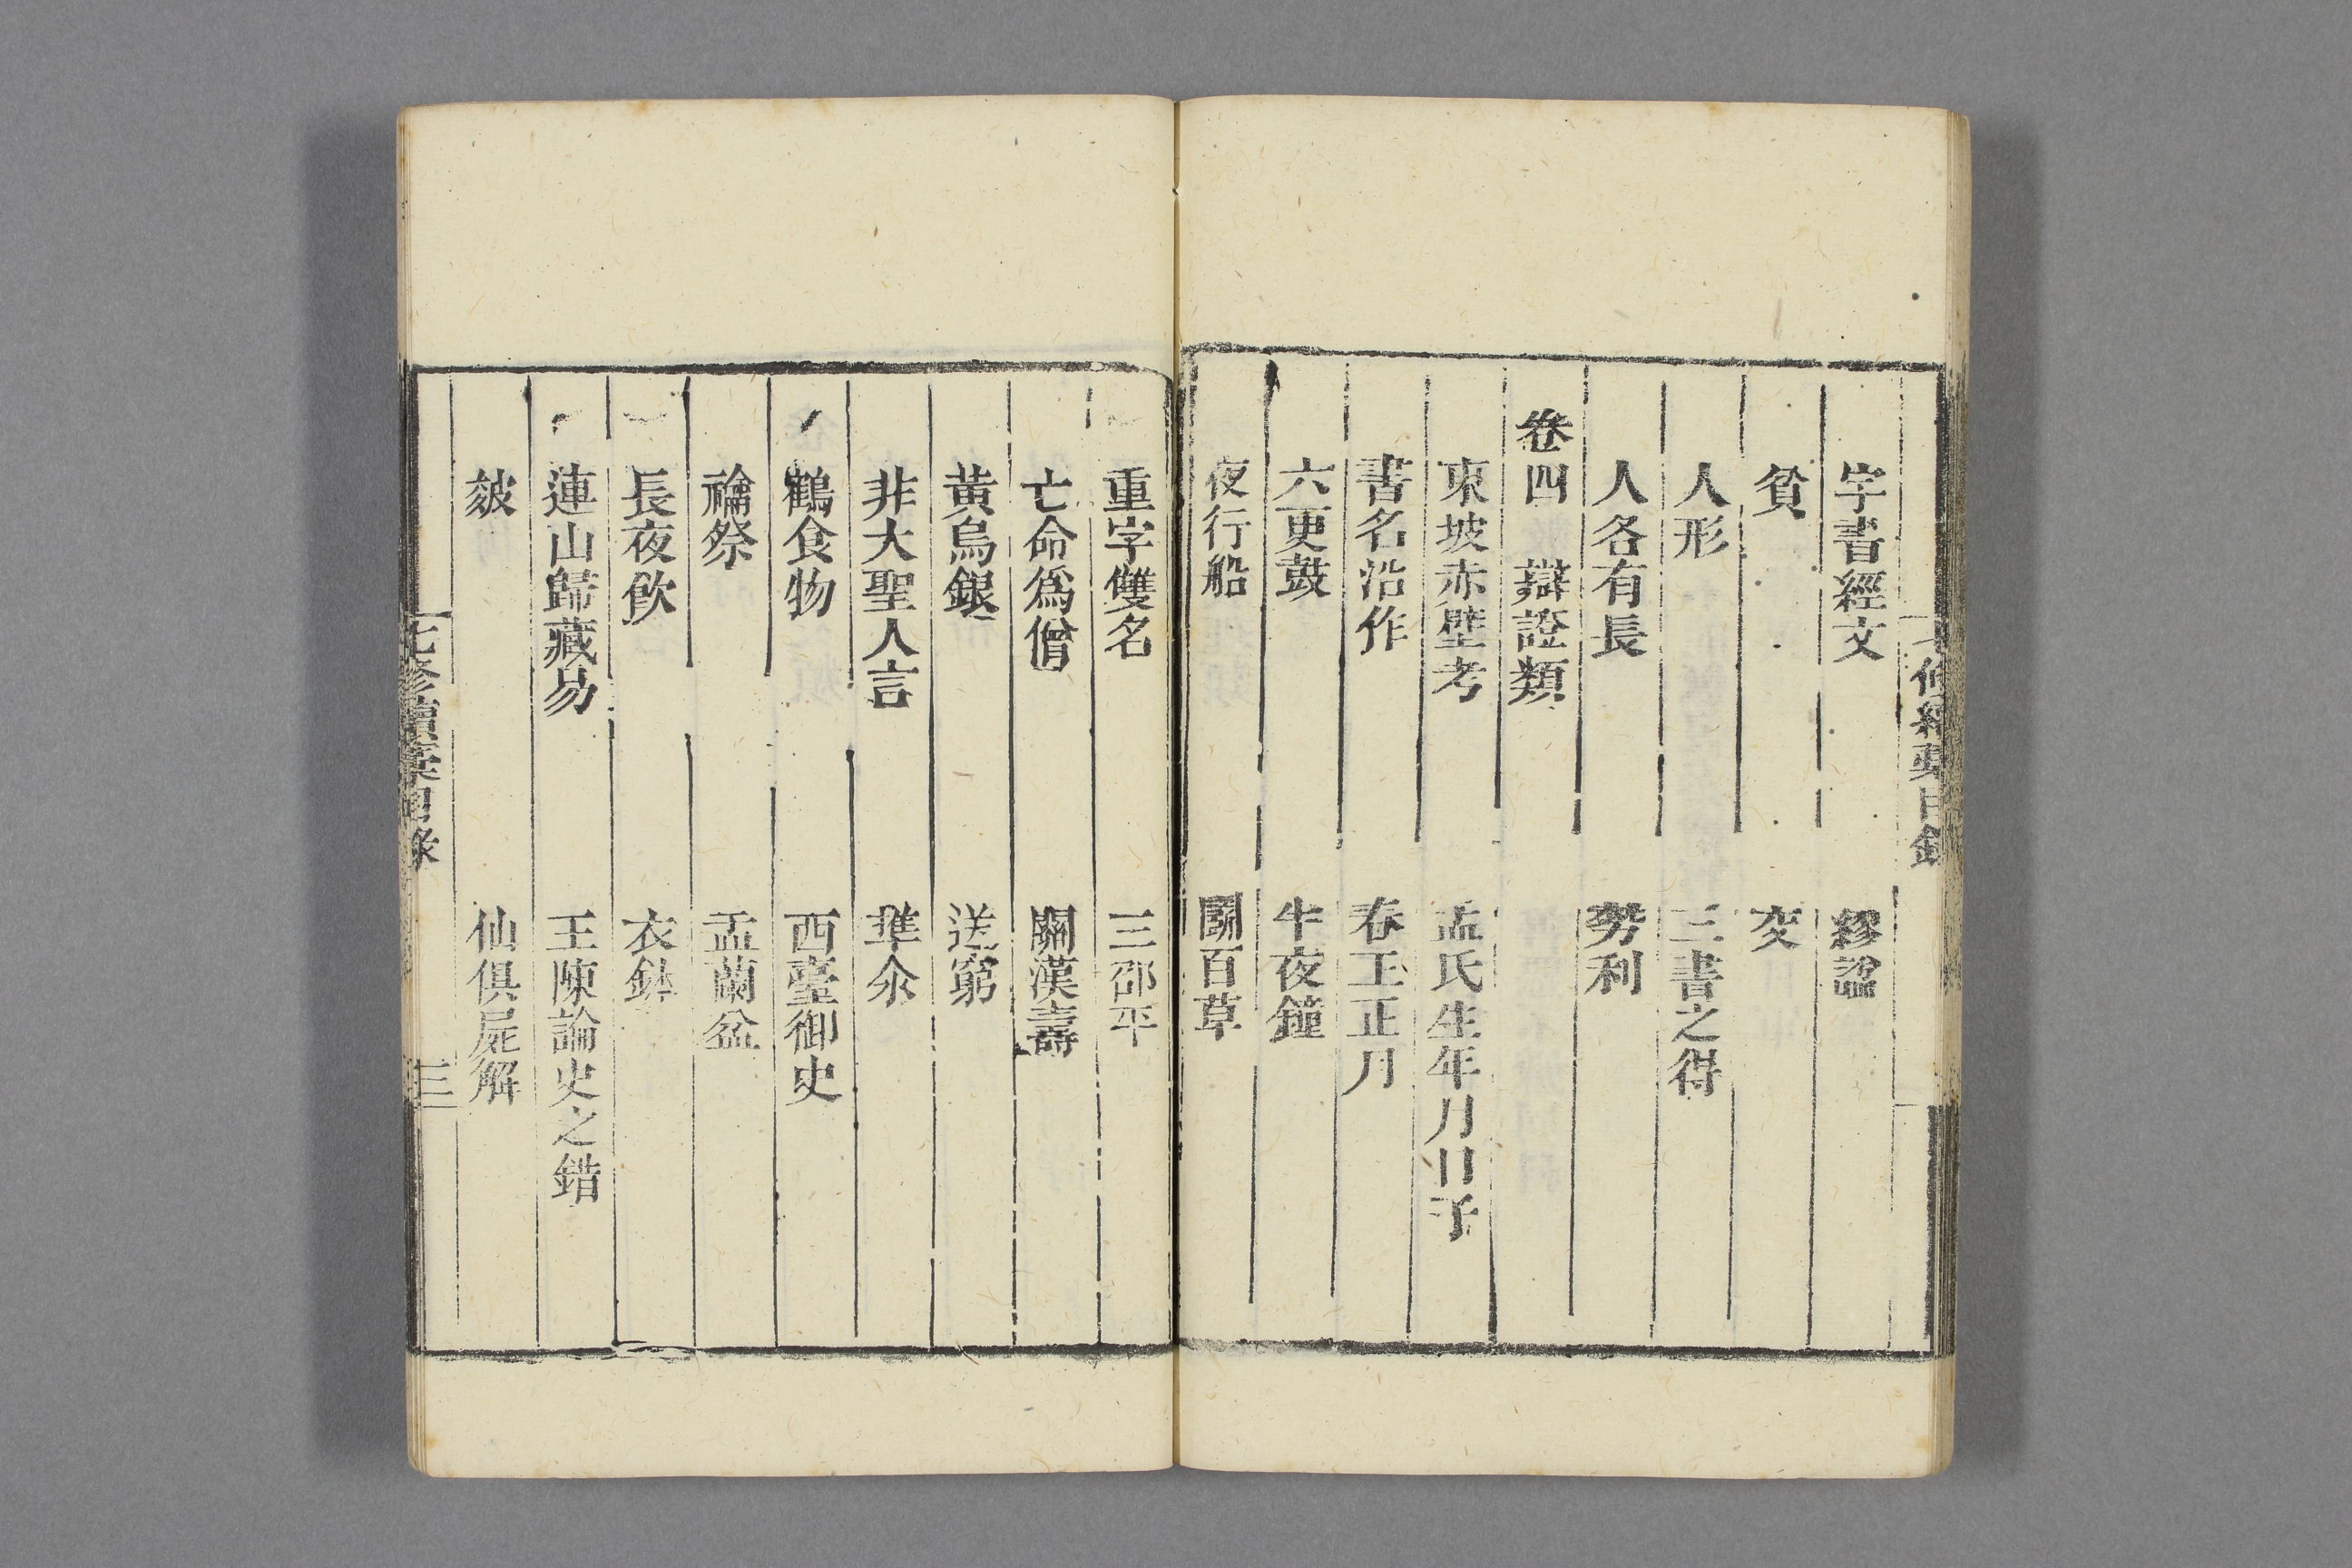 字書經文　繆諡
貧　交
人形　三書之得
人各有長　勢利
卷四　辯證類
東坡赤壁考　孟氏生年月日子
書名沿作　春王正月
六更鼓　牛夜鐘
夜行船　鬭百草
重字雙名　三邵平
亡命爲僧　關漢壽
黄烏銀　送窮
非大聖人言　準余
鶴食物　西臺御史
禴祭　盂蘭盆
長夜飲　衣鉢
連山歸藏易　王陳論史之錯
皴　仙俱屍解
七修續藁目錄　三